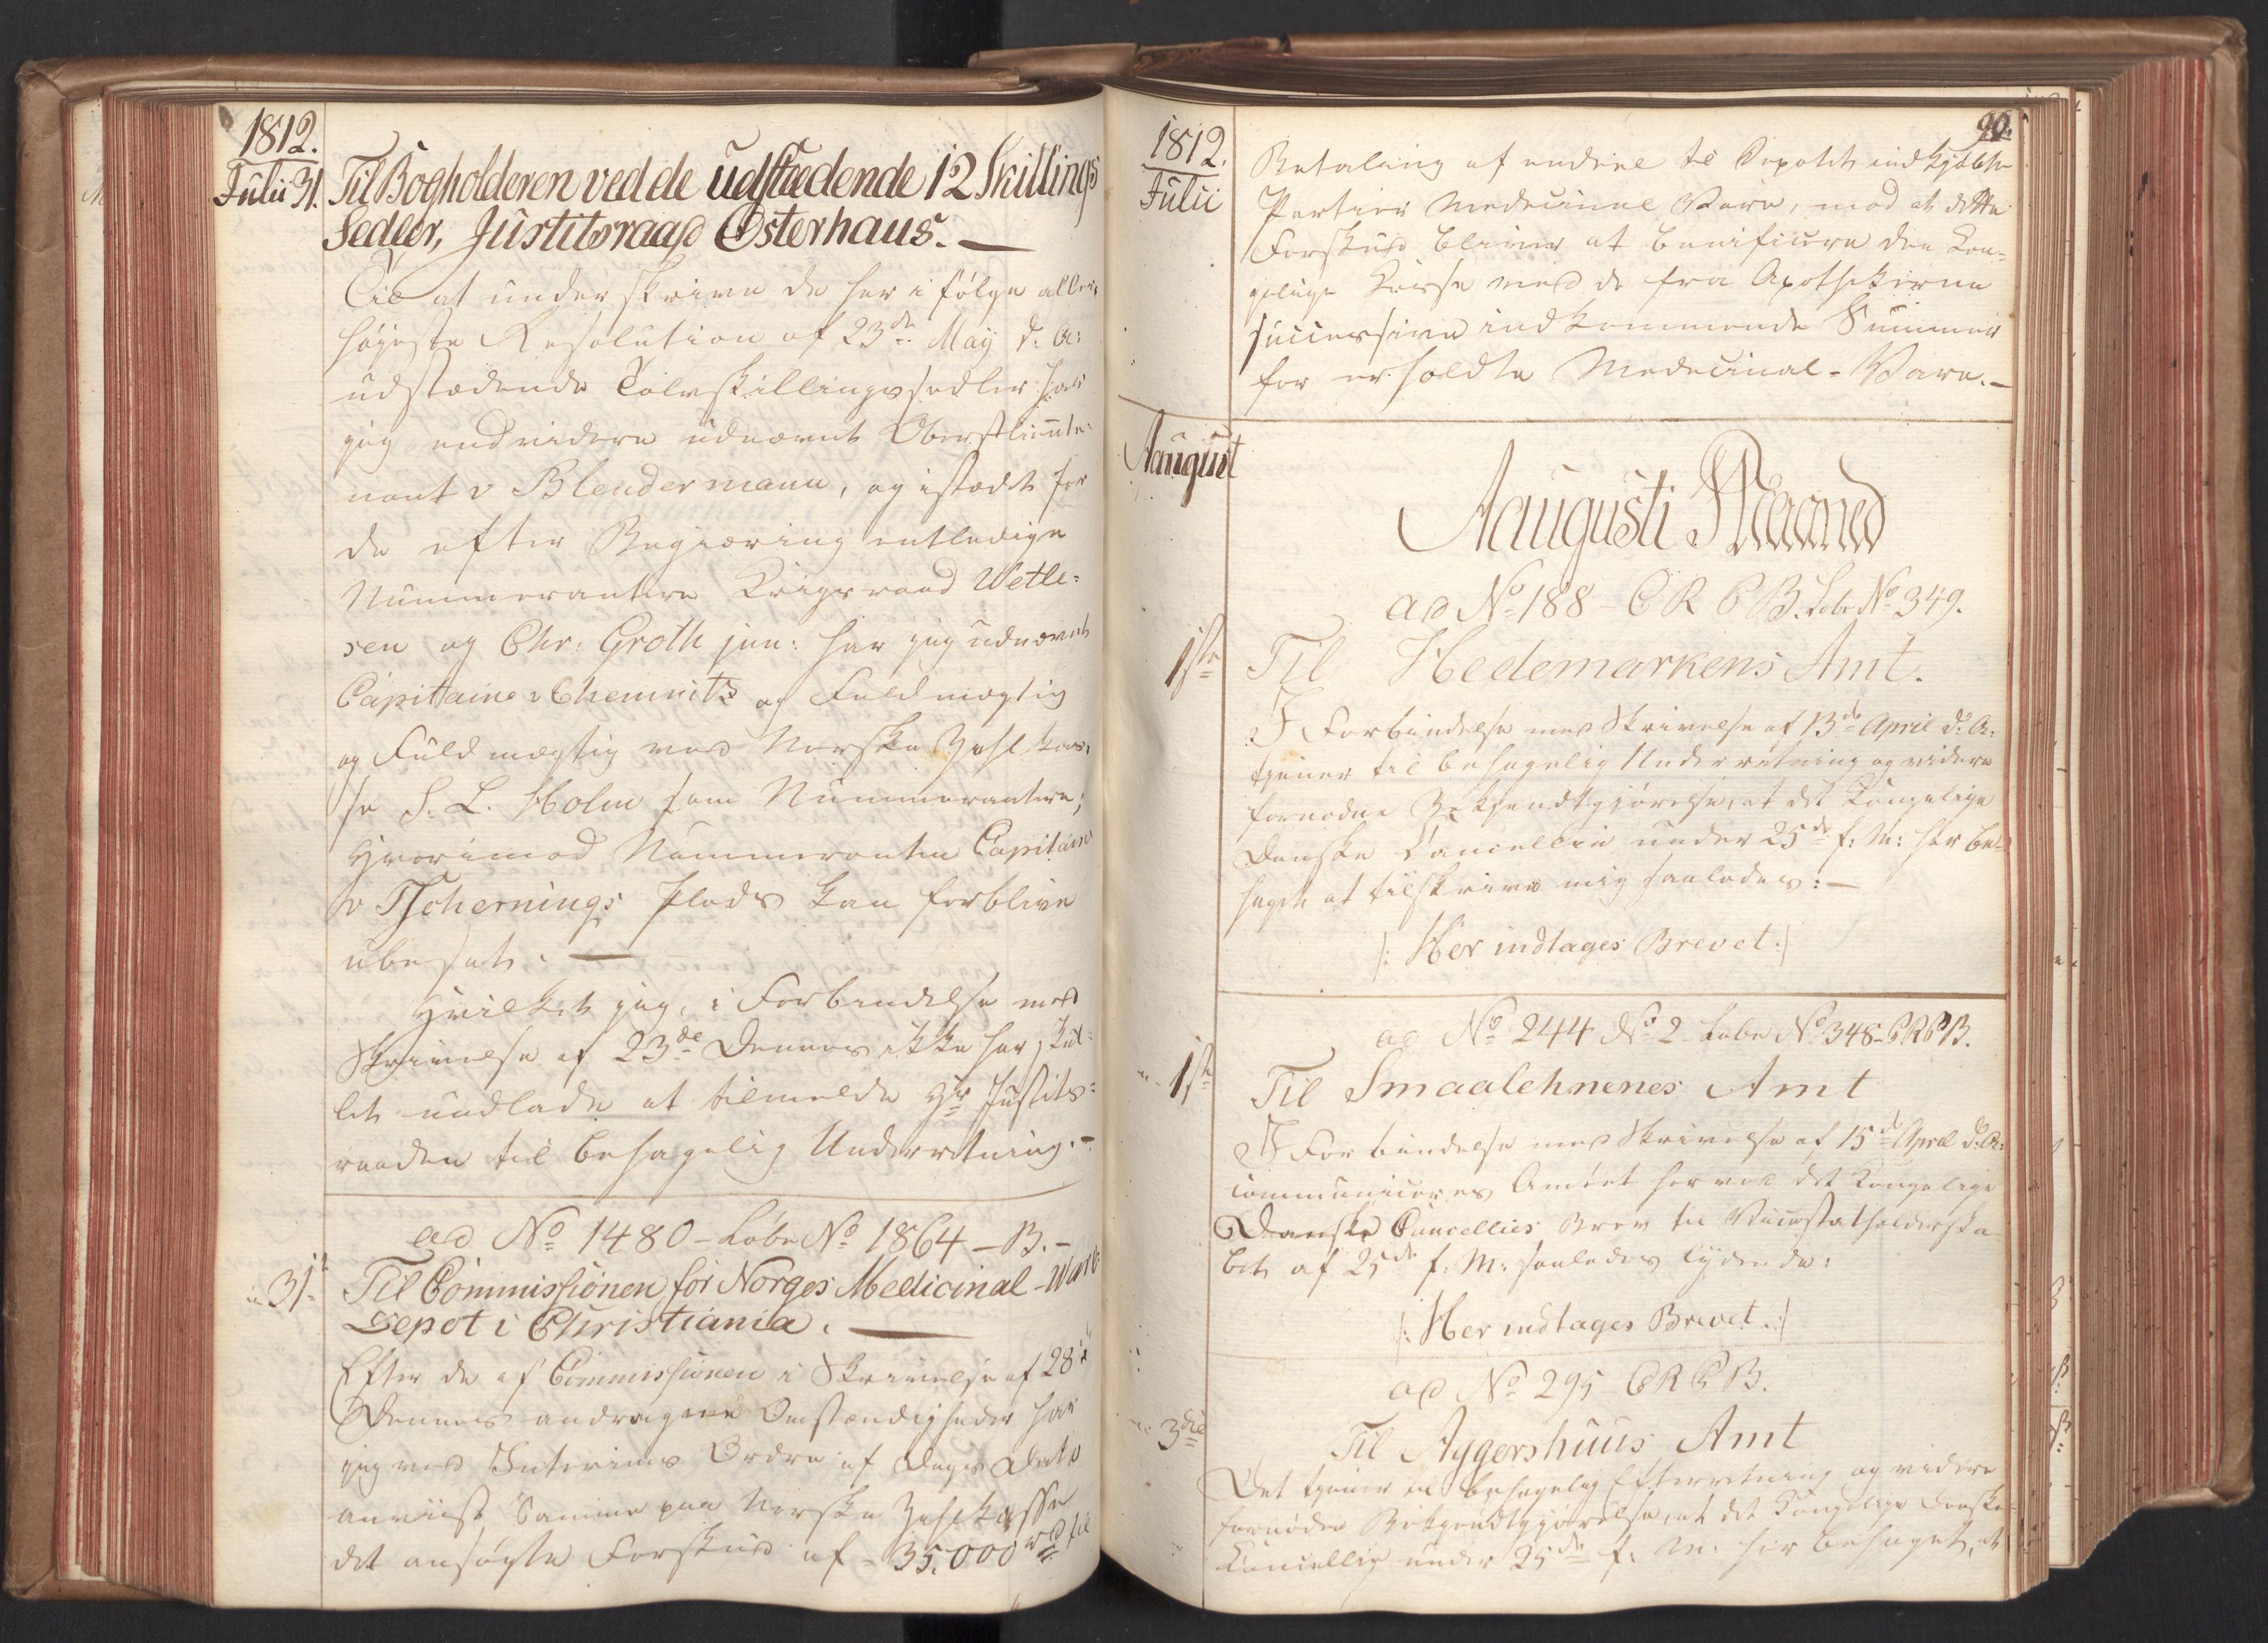 1812.
Julii 31.
Til Bogholderen ved de udstædende 12 Skillings
Sedler, Justitsraad Osterhaus. —
Til at underskrive de her i følge aller-
høyeste Resolution af 23de May d: A:
udstædende Tolvskillingssedler har
jeg endvidere udnævnt Oberstlieute-
nant v Blendermann, og istædet for
de efter Begiæring entledige
Nummerantere Krigsraad Wetle-
sen og Chr: Groth jun: har jeg udnævnt
Capitaine v Chemnitz og Fuldmægtig
og Fuldmægtig ved Norske Zahlkas-
se S. L. Holm som Nummerantere;
Hvorimod Nummeranten Capitain
v Tschernings Plads kan forblive
ubesat. —
Hvilket jeg, i Forbindelse med
Skrivelse af 23de Dennes ikke har skul-
let undlade at tilmelde Hr Justits-
raaden til behagelig Underretning. -
ad No 1480 - Løbe No 1864 - B. -
31.
Til Commissionen for Norges Medicinal-Ware
Depot i Christiania. —
Efter de af Commissionen i Skrivelse af 28de
Dennes andragne Omstændigheder har
jeg ved Interims Ordre af Dags Dato
anviist Samme paa Norske Zahlkasse
det ansøgte Forskud af - 35.000 rd til
90.
1812.
Julii
Betaling af endeel til Depotet indkjøbte
Partier Medicinal Vare, mod at dette
Forskud bliver at benificere den Kon-
gelige Kasse med de fra Apothekerne
successive indkommende Summer
for erholdte Medicinal-Vare. -
Aaugust
Aaugusti Maaned
ad No 188 - C R C B. Løbe No 349.
1ste
Til Hedemarkens Amt.
I Forbindelse med Skrivelse af 13de April d: A:
tjener til behagelig Underretning og videre
fornødne Bekjendtgjørelse, at det Kongelige
Danske Cancellie under 25de f: M: har be-
haget at tilskrive mig saaledes: —
/: Her indtages Brevet :/
ad No 244 No 2 Løbe No 348 - C R C B.
1ste
Til Smaalehnenes Amt
I Forbindelse med Skrivelse af 15de April d: A:
communiceres Amtet herved det Kongelige
Danske Cancellies Brev til Vicestatholderska-
bet af 25de f: M: saaledes lydende:
/: Her indtages Brevet. :/
ad No 295 C R C B.
3die
Til Aggershuus Amt
Det tjener til behagelig Efterretning og videre
fornøden Bekjendtgjørelse, at det Kongelige Danske
Cancellie under 25de f: M: har behaget, at